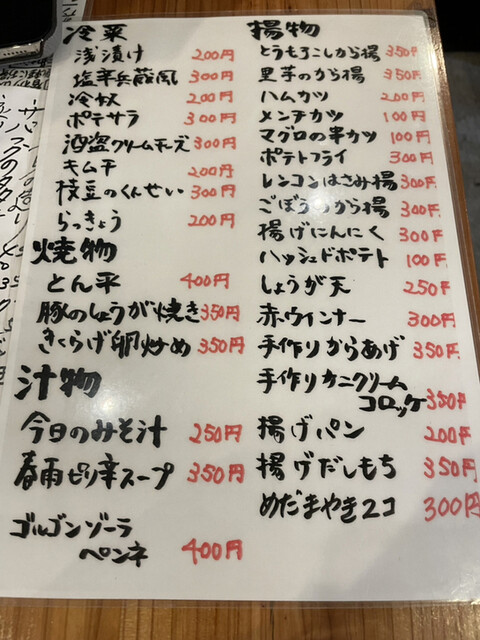 冷菜
浅漬け 200円
塩辛兵蔵風 300円
冷奴 200円
ポテサラ 300円
酒盗クリームチーズ 300円
キムチ 200円
枝豆のくんせい 300円
らっきょう 200円
焼物
とん平 400円
豚のしょうが焼き 350円
きくらげ卵炒め 350円
汁物
今日のみそ汁 250円
春雨ピリ辛スープ 350円
ゴルゴンゾーラ
ペンネ 400円
揚物
とうもろこしから揚 350円
里芋のから揚 350円
ハムカツ 200円
メンチカツ 100円
マグロの串カツ 100円
ポテトフライ 300円
レンコンはさみ揚 300円
ごぼうのから揚 300円
揚げにんにく 300円
ハッシュドポテト 100円
しょうが天 250円
赤ウインナー 300円
手作りからあげ 350円
手作りカニクリーム
コロッケ 350円
揚げパン 200円
揚げだしもち 350円
めだまやき2コ 300円